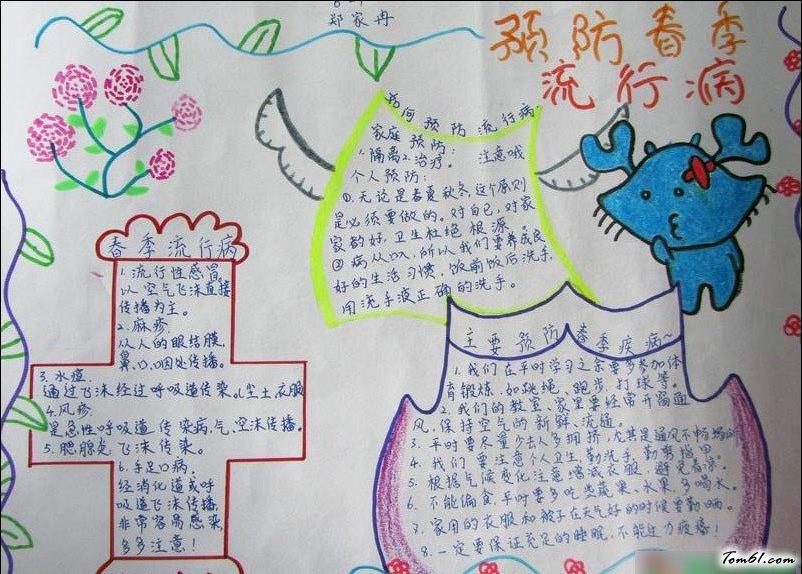 郑家冉
预防春季
流行病
春季流行病
1.流行性感冒
以空气飞沫直接
传播为主。
2.麻疹
从人的眼结膜,
鼻、口、咽处传播。
3.水痘
通过飞沫经过呼吸道传染。尘土衣服
4.风疹
是急性呼吸道传染病,气、空沫传播。
5.腮腺炎飞沫传染。
6.手足口病,
经消化道或呼
吸道飞沫传播,
非常容易感染,
多多注意!
如何预防流行病
家庭预防:
1.隔离2.治疗。 注意哦
个人预防:
①.无论是春夏秋冬,这个原则
是必须要做的。对自己,对家
家的好,卫生杜绝根源。
②病从口入,所以我们要养成良
好的生活习惯,饭前饭后洗手,
用洗手液正确的洗手。
主要预防春季疾病~
1.我们在平时学习之余要多参加体
育锻炼,如跳绳、跑步、打球等。
2.我们的教室、家里要经常开窗通
风,保持空气的新鲜、流通。
3.平时要尽量少去人多拥挤,尤其是通风不畅场所
4.我们要注意个人卫生,勤洗手、勤剪指甲
5.根据气候变化注意增减衣服,避免着凉。
6.不能偏食,平时要多吃些蔬果、水果,多喝水。
7.家用的衣服和被子在天气好的时候要勤晒。
8.一定要保证充足的睡眠,不能压力疲惫!
Tom61.com